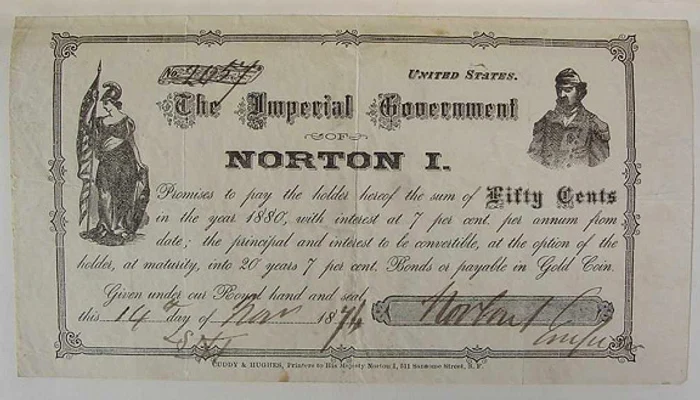 No. 2057
UNITED STATES.
The Imperial Government
OF
NORTON I.
Promises to pay the holder hereof the sum of Fifty Cents
in the year 1880, with interest at 7 per cent. per annum from
date; the principal and interest to be convertible, at the option of the
holder, at maturity, into 20 years 7 per cent. Bonds or payable in Gold Coin.
Given under our Royal hand and seal,
this 14 day of 187
Norton I
CUDDY & HUGHES, Printers to His Majesty Norton I, 511 Sansome Street, S. F.